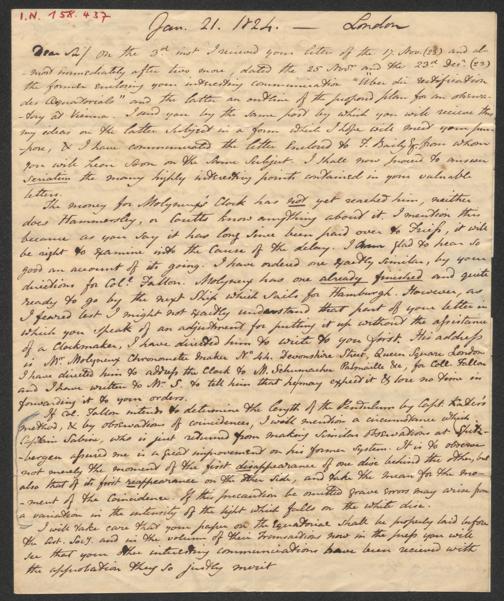 I.N. 158.437
Jan. 21. 1824. — London
Dear Sir/ On the 3rd inst I received your letter of the 17 Nov. (23) and al-
-most immediately after two more, dated the 25 Novr. and the 23rd Decr. (23)
the former enclosing your interesting communication "Über die Rectification
des Aequatorials" and the latter an outline of the proposed plan for an observa-
-tory at Vienna. I send you by the same post by which you will receive this
my ideas on the latter subject in a form which I hope will meet your pur-
-pose, & I have communicated the letter enclosed to F. Baily from whom
you will hear soon on the same subject. I shall now proceed to answer
seriatim the many highly interesting points contained in your valuable
letters.
The money for Molyneux's Clock has not yet reached him, neither
does Hammersley, or Coutts know anything about it. I mention this
because as you say it has long since been paid over to it will
be right to examine into the cause of the delay. I am glad to hear so
good an account of its going. I have ordered one exactly similar, by your
directions for Coll. Fallon. Molyneux has one already finished and quite
ready to go by the next Ship which sails for Hamburgh. However, as
I feared lest I might not exactly understand that part of your letter in
which you speak of an adjustment for putting it up without the assistance
of a Clockmaker, I have directed him to write to you first. His address
is Mr. Molyneux Chronometer Maker No. 44. Devonshire Street, Queen Square London
I have directed him to address the Clock to M. Schumacher &c, for Coll. Fallon
and I have written to Mr. S. to tell him that he may expect it & lose no time in
forwarding it to your orders.
If Col. Fallon intends to determine the length of the Pendulum by Capt Kater's
method, & by observations of coincidences, I will mention a circumstance which
Captain Sabine, who is just returned from making similar observation at Spitz-
-bergen assured me is a great improvement on his former system. It is to observe
not merely the moment of the first disappearance of one disc behind the other, but
also that of its first reappearance on the other side, and take the mean for the mo-
-ment of the coincidence. If this precaution be omitted grave errors may arise from
a variation in the intensity of the light which falls on the white disc.
I will take care that your paper on the Equatorial shall be properly laid before
the Ast. Socy. and in the volume of their Transactions now in the press you will
see that your other interesting communications have been received with
the approbation they so justly merit